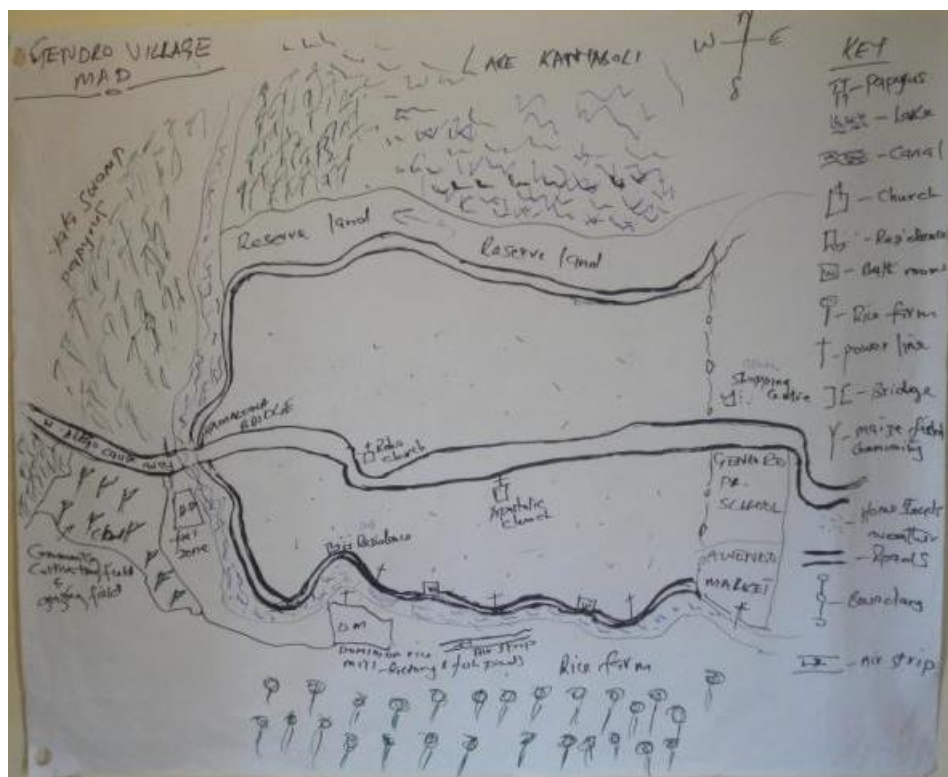 GENDRO VILLAGE
MAP
LAKE KANYABOLI
N
W E
S
KEY
Papyrus
Lake
Canal
Church
Residence
Bath rooms
Rice firm
power line
Bridge
maize field
community
Home stede
Roads
Boundary
Air strip
Yala Swamp
papyrus
Reserve land
Reserve land
BRIDGE
cause way
Roho
church
Apostolic
church
Shopping
Centre
GENDRO
PR.
SCHOOL
AWENDO
MARKET
Residence
zone
Community
Cultivation field
&
grazing field
DM
Dominion rice
mill factory & fish ponds
Air strip
Rice firm